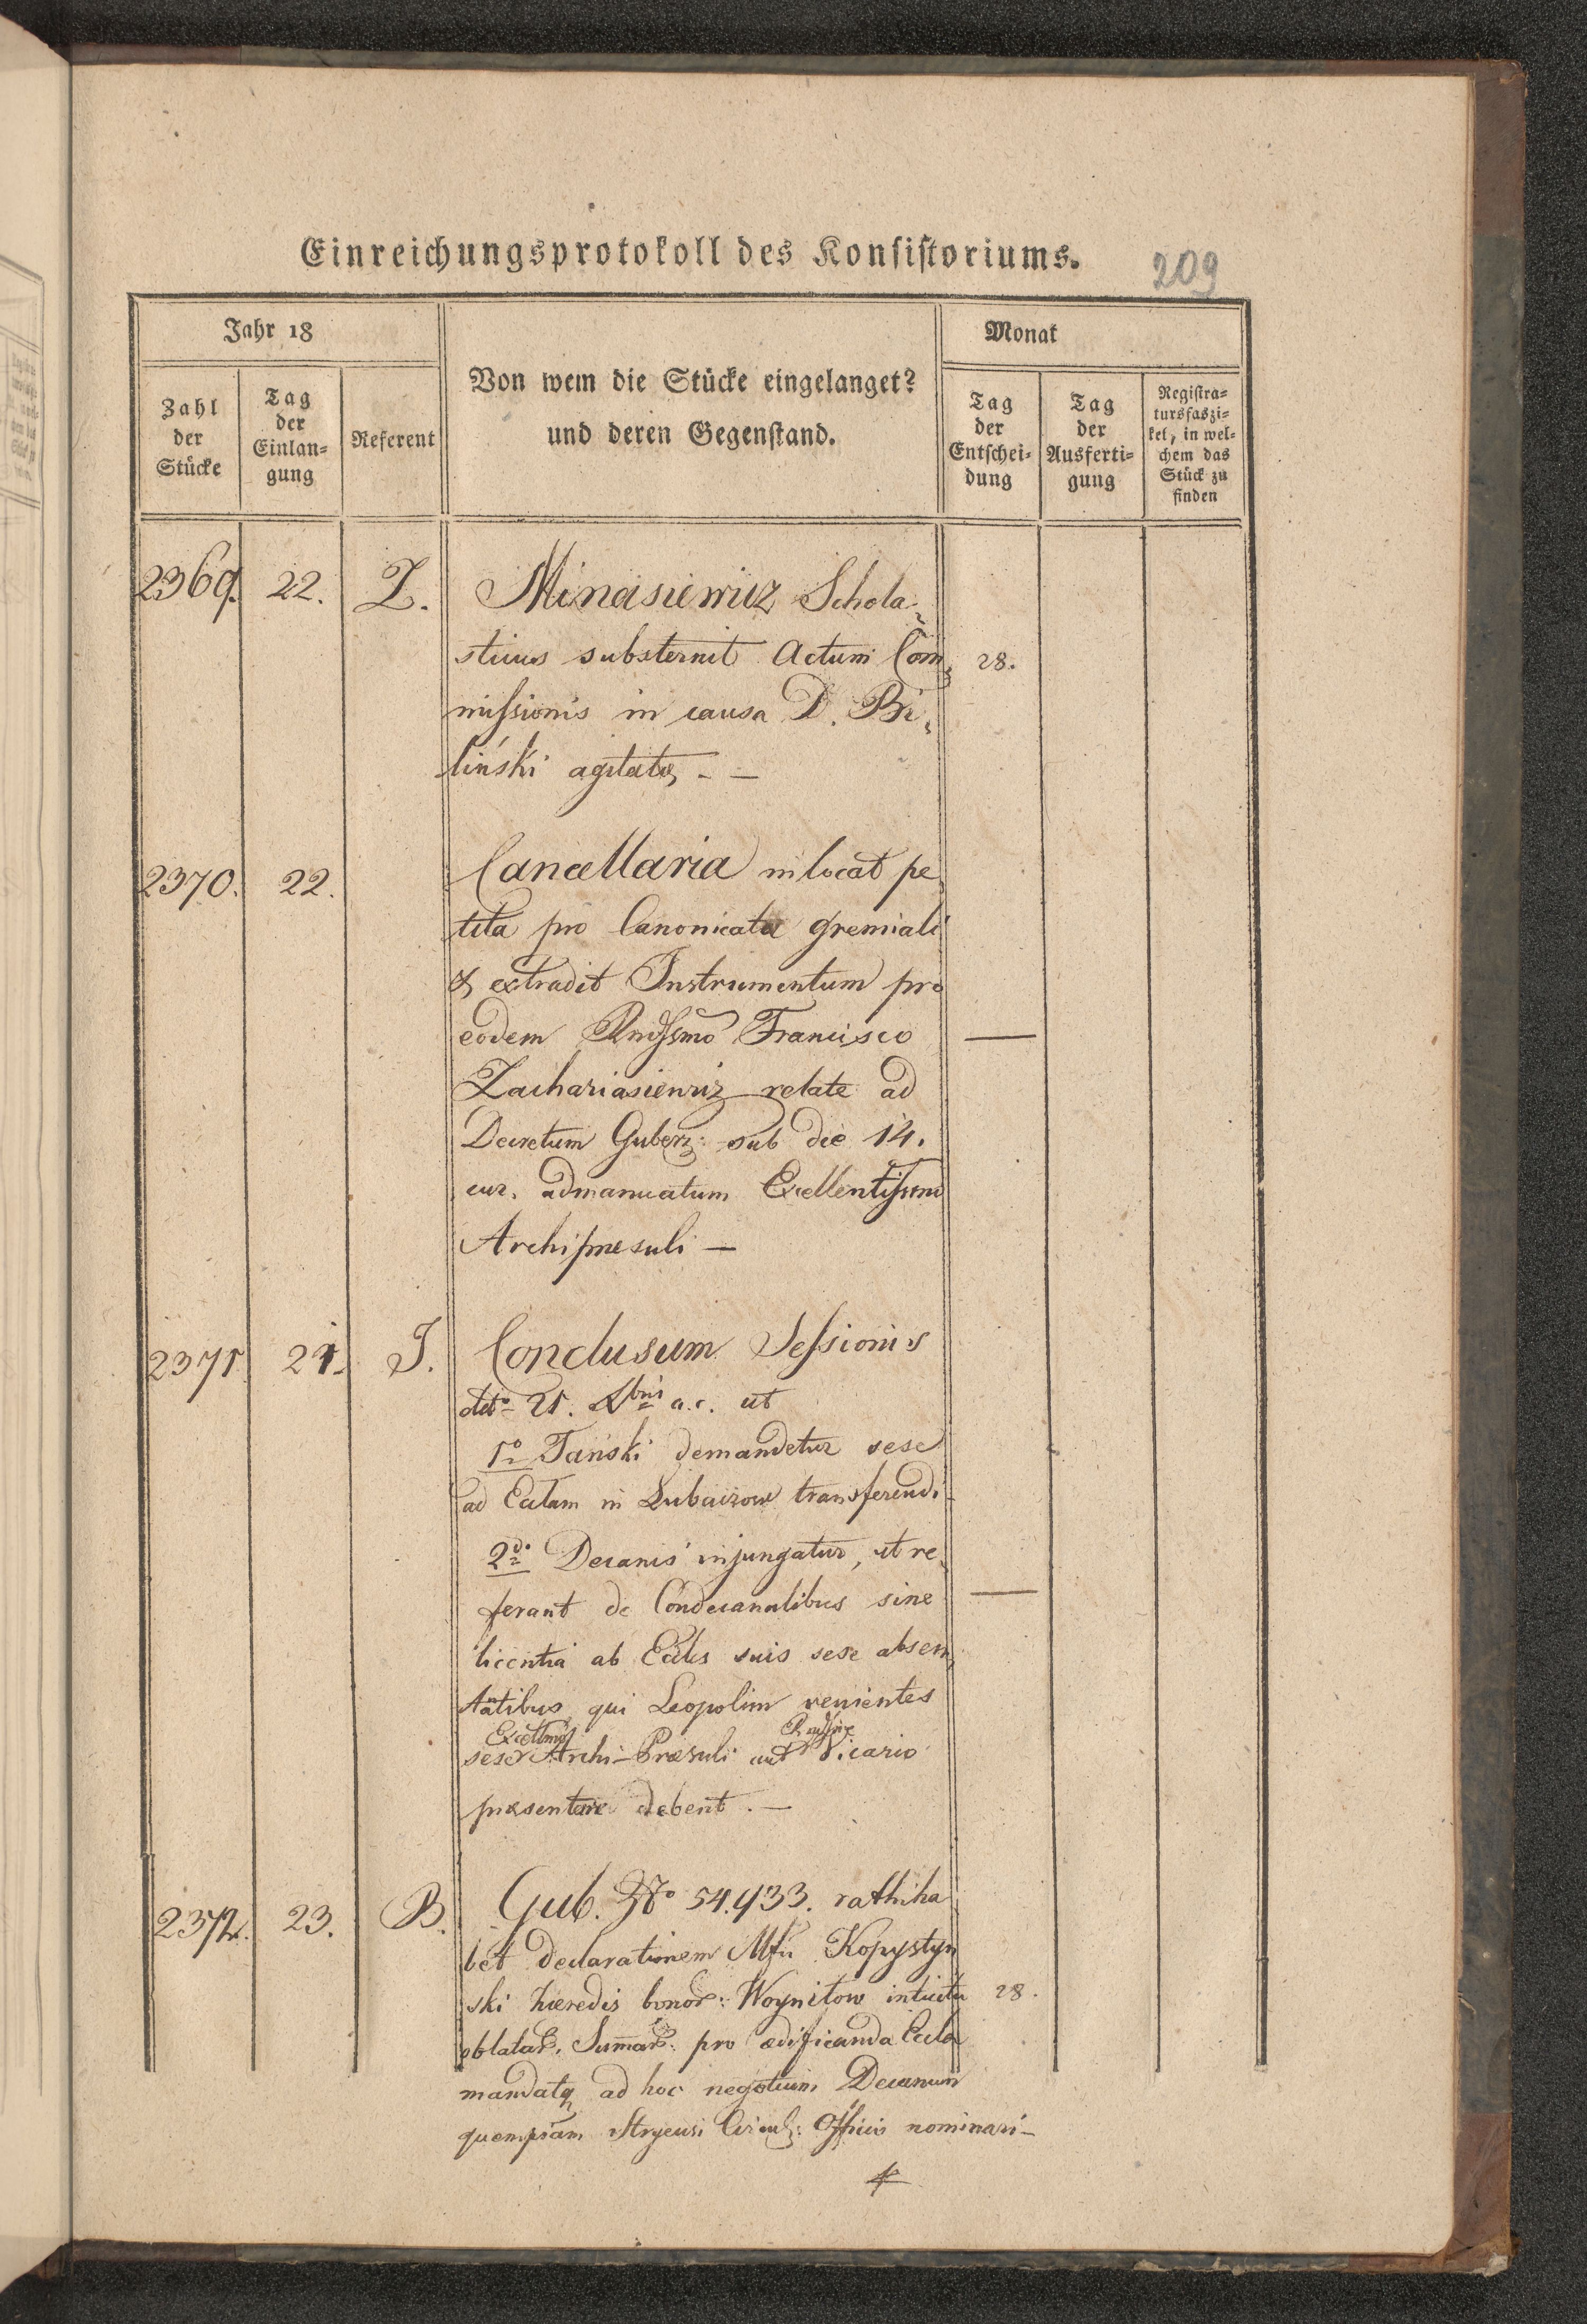 Einreichungsprotokoll des Konsistoriums.
209
Jahr 18
Monat
Zahl der Stücke
Tag der Einlan=gung
Referent
Von wem die Stücke eingelanget?
und deren Gegenstand.
Tag der Entschei=dung
Tag der Ausferti=gung
Registra=tursfaszi=kel, in wel=chem das Stück zu finden
2369. 22. Z. Minasiewicz Schola=
sticus substernit Actum Com=
missionis in causa D. Bi= 28.
liński agitatæ - —
2370. 22. Cancellaria inlocat pe
tita pro Canonicatu gremiali
& extradit Instrumentum pro
eodem Rndssmo Francisco —
Zachariasiewicz relate ad
Decretum Gubern: sub die 14.
cur. admanuatum Excellentissimo
Archipræsuli —
2371 21. J. Conclusum Sessionis
dto 21. Xbris a.c. ut
1o Tański demandetur sese
ad Eccla̅m in Lubaczow transferendi
2do Decanis injungatur, ut re=
ferant de Condecanalibus sine —
licentia ab Eccliis suis sese absen
tantibus, qui Leopolim venientes
sese Excellmo Archi-Præsuli aut Rndssmo Vicario
præsentare debent. —
2372. 23. B. Gub. No 54.933. rathiha
bet declarationem Mfci Kopystyn
ski hæredis bonor: Woynitow intuitu 28.
oblatar. Summar: pro ædificanda Eccla
mandatq ad hoc negotium Decanum
quempiam Stryensi Circul: Officio nominari -